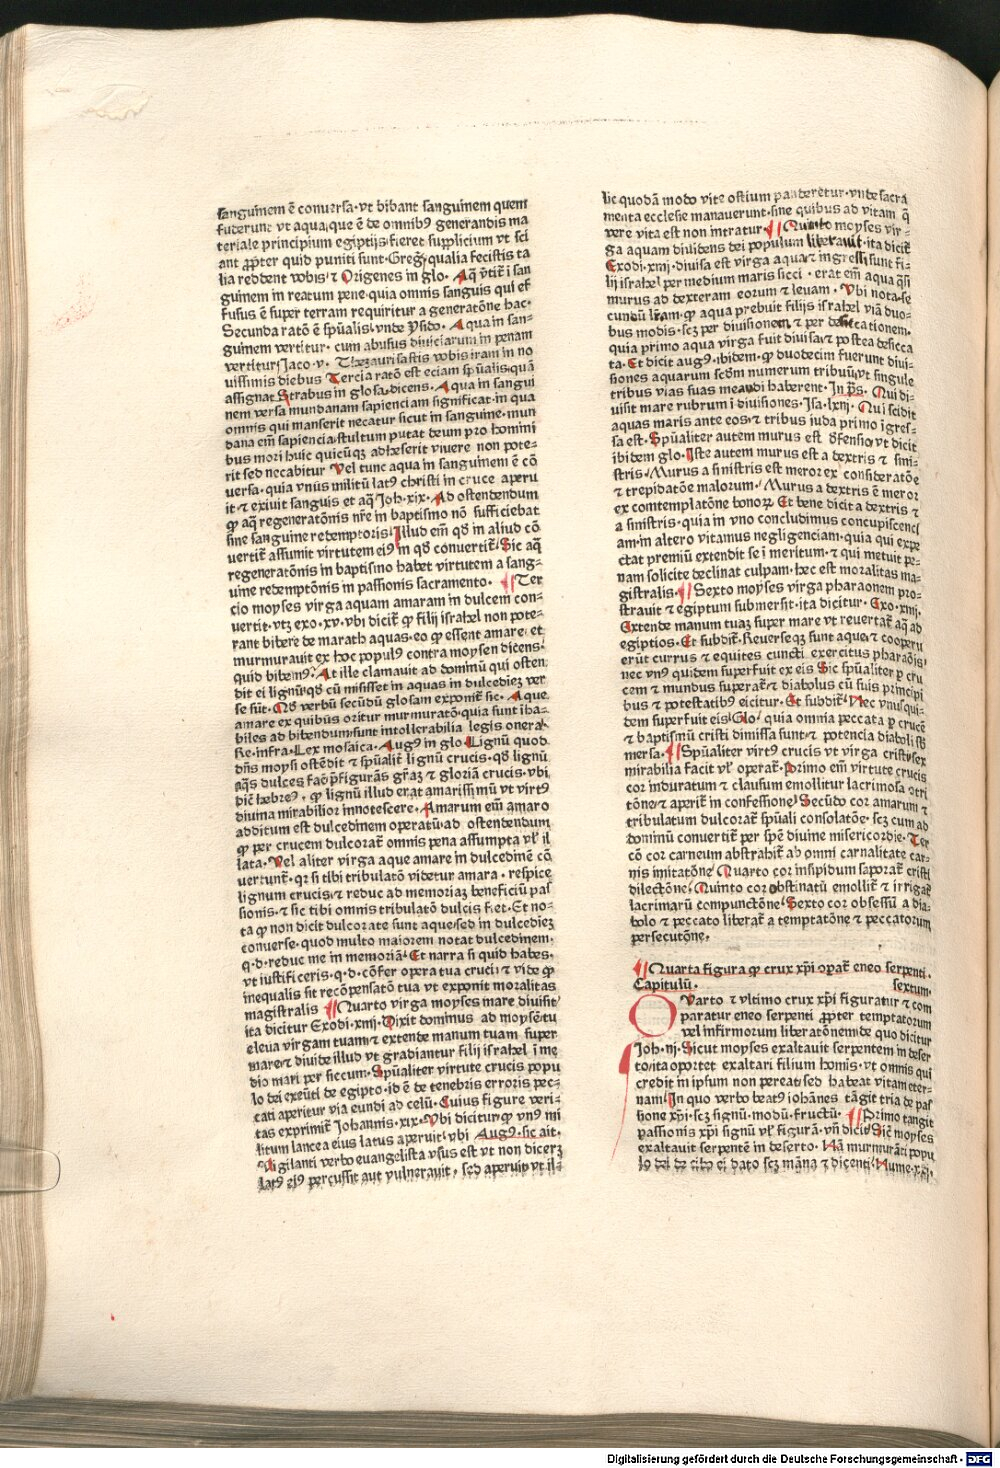 sanguinem ē conuersa·vt bibant sanguinem quem
fuderunt vt aqua,que ē de omnibꝰ generandis ma
teriale principium egiptijs fieret supplicium vt sci
ant ꝓpter quid puniti sunt·Greg̕·qualia fecistis ta
lia reddent vobis·⁊ Origenes in glo· Aq̄ v̄titͬ i san
guinem in reatum pene·quia omnis sanguis qui ef
fusus ē super terram requiritur a generatōne hac·
Secunda ratō ē spūalis·vnde ysido· Aqua in san-
guinem vertitur· cum abusus diuiciarum in penam
vertitur·Jaco·v· Thezaurisastis vobis iram in no
uissimis diebus Tercia ratō est eciam spūalis·quā
assignat Strabus in glosa·dicens· Aqua in sangui
nem versa mundanam sapienciam significat·in qua
omnis qui manserit necatur sicut in sanguine·mun
dana em̄ sapiencia·stultum putat deum pro homini
bus mori huic quicūqꝫ adheserit viuere non pote-
rit sed necabitur Vel tunc aqua in sanguinem ē cō
uersa·quia vnus militū latꝰ christi in cruce aperu
it ⁊ exiuit sanguis et aq̄·Joh·xix· Ad ostendendum
ꝙ aq̄ regeneratōnis nr̄e in baptismo nō sufficiebat
sine sanguine redemptoris Illud em̄ qd̄ in aliud cō
uertitͬ assumit virtutem eiꝰ in qd̄ conuertitͬ Sic aq̄
regeneratōnis in baptismo habet virtutem a sang-
uine redemptōnis in passionis sacramento· ¶Ter
cio moyses virga aquam amaram in dulcem con-
uertit·vtꝫ exo·xv·vbi dicitͬ ꝙ filij israhel non pote-
rant bibere de marath aquas·eo ꝙ essent amare·et
murmurauit ex hoc populꝰ contra moysen dicens·
quid bibemꝰ·At ille clamauit ad dominū qui osten
dit ei lignū·qd̄ cū misisset in aquas in dulcedieꝫ ver
se sūt·Qd̄ verbū secūdū glosam exponitͬ sic· Aque
amare ex quibus oritur murmuratō·quia sunt iha-
biles ad bibendum·sunt intollerabilia legis onera·
He·infra·Lex mosaica·Augꝰ in glo Lignū quod
dn̄s moysi ostēdit ⁊ spūalitͬ lignū crucis·qd̄ lignū
aq̄s dulces facͥ p̄figurās gr̄aꝫ ⁊ gloriā crucis·vbi
dic̄ hebreꝰ· ꝙ lignū illud erat amarissimū vt virtꝰ
diuina mirabilior innotescere· Amarum em̄ amaro
additum est dulcedinem operatū·ad ostendendum
ꝙ per crucem dulcoratͬ omnis pena assumpta vl̕ il
lata·Vel aliter virga aque amare in dulcedinē cō
uertuntͬ·qꝛ si tibi tribulatō videtur amara· respice
lignum crucis·⁊ reduc ad memoriaꝫ beneficiū pas
sionis·⁊ sic tibi omnis tribulatō dulcis fiet·Et no-
ta ꝙ non dicit dulcorate sunt aque·sed in dulcedieꝫ
conuerse·quod multo maiorem notat dulcedinem·
q·d·reduc me in memoriā·Et narra si quid habes·
vt iustificeris·q·d·cōfer opera tua cruci·⁊ vide ꝙ
inequalis sit recōpensatō tua vt exponit moralitas
magistralis ¶Quarto virga moyses mare diuisit·
ita dicitur Exodi·xiiij·Dixit dominus ad moysen·tu
eleua virgam tuam·⁊ extende manum tuam super
mare·⁊ diuide illud vt gradiantur filij israhel i me
dio mari per siccum·Spūaliter virtute crucis popu
lo dei exeūti de egipto·id ē de tenebris erroris pec-
cati aperitur via eundi ad celū·Cuius figure veri-
tas exprimitͬ Johannis·xix·Vbi dicitur·ꝙ vnꝰ mi
litum lancea eius latus aperuit·vbi Augꝰ·sic ait·
Vigilanti verbo euangelista vsus est vt non dicerꝫ
latꝰ eiꝰ percussit aut vulnerauit· sed aperuit·vt il-
lic quodā modo vite ostium panderetur·vnde sacra
menta ecclesie manauerunt·sine quibus ad vitam q̄
vere vita est non intratur·¶Quinto moyses vir-
ga aquam diuidens dei populum liberauit·ita dicitͬ
Exodi·xiiij·diuisa est virga aqua·⁊ ingressi sunt fi-
lij israhel per medium maris sicci· erat em̄ aqua q̄si
murus ad dexteram eorum ⁊ leuam· Vbi nota·se
cundū lr̄am·ꝙ aqua prebuit filijs israhel viā duo-
bus modis·scꝫ per diuisionem·⁊ per desiccationem·
quia primo aqua virga fuit diuisa·⁊ postea desicca
ta·Et dicit augꝰ·ibidem·ꝙ duodecim fuerunt diui-
siones aquarum scd̄m numerum tribuū·vt singule
tribus vias suas meandi haberent·In p̄s· Qui di-
uisit mare rubrum i diuisiones·Isa·lxiij·Qui scidit
aquas maris ante eos·⁊ tribus iuda primo īgres-
sa est·Spūaliter autem murus est d̄fensio·vt dicit
ibidem glo·Iste autem murus est a dextris ⁊ sini-
stris·Murus a sinistris est meror ex consideratōe
⁊ trepidatōe malorum· Murus a dextris ē meror
ex comtemplatōne bonoꝝ Et bene dicit a dextris ⁊
a sinistris·quia in vno concludimus concupiscenci
am·in altero vitamus negligenciam·quia qui expe
ctat premiū extendit se ī meritum·⁊ qui metuit pe-
nam solicite declinat culpam·hec est moralitas ma-
gistralis·¶Sexto moyses virga pharaonem pro-
strauit ⁊ egiptum submersit·ita dicitur· Exo·xiiij·
Extende manum tuaꝫ super mare vt reuertatͬ aq̄ ad
egiptios·Et subdit·Reuerseqꝫ sunt aque·⁊ cooperu
erūt currus ⁊ equites cuncti exercitus pharaōis·
nec vnꝰ quidem superfuit ex eis Sic spūaliter ꝑ cru
cem ⁊ mundus superatͬ·⁊ diabolus cū suis principi
bus ⁊ potestatibꝰ eicitur·Et subdit·Nec vnus qui-
dem superfuit eis·Glo· quia omnia peccata ꝑ crucē
⁊ baptismū cristi dimissa sunt·⁊ potencia diaboli sb̄
mersa·¶Spūaliter virtꝰ crucis vt virga cristi·sex
mirabilia facit vl̕ operatͬ·Primo em̄ virtute crucis
cor induratum ⁊ clausum emollitur lacrimosa ꝯtri
tōne·⁊ aperitͬ in confessione Secūdo cor amarum ⁊
tribulatum dulcoratͬ spūali consolatōe·scꝫ cum ad
dominū conuertitͬ per spē diuine misericordie·Ter
cō cor carneum abstrahitͬ ab omni carnalitate car-
nis imitatōne Quarto cor insipidum saporatͬ cristi
dilectōne Quinto cor obstinatū emollitͬ ⁊ irrigatͬ
lacrimarū compunctōne Sexto cor obsessū a dia-
bolo ⁊ peccato liberatͬ a temptatōne ⁊ peccatorum
persecutōne·
¶Quarta figura ꝙ crux xp̄i ꝯparatͬ eneo serpenti·
Capitulū· sextum·
QVarto ⁊ vltimo crux xp̄i figuratur ⁊ com
paratur eneo serpenti ꝓpter temptatorum
vel infirmorum liberatōnem·de quo dicitur
Joh·iij·Sicut moyses exaltauit serpentem in deser
to·ita oportet exaltari filium homīs·vt omnis qui
credit in ipsum non pereat·sed habeat vitam eter-
nam·In quo verbo beatꝰ iohānes tāgit tria de pas
sione xp̄i·scꝫ signū·modū·fructū· ¶Primo tangit
passionis xp̄i signū vl̕ figurā·vn̄ dicit Sic moyses
exaltauit serpentē in deserto·Nā murmurāti popu
lo dei de cibo ei dato scꝫ māna ⁊ dicenti·Nume·xxi·
Digitalisierung gefördert durch die Deutsche Forschungsgemeinschaft - DFG